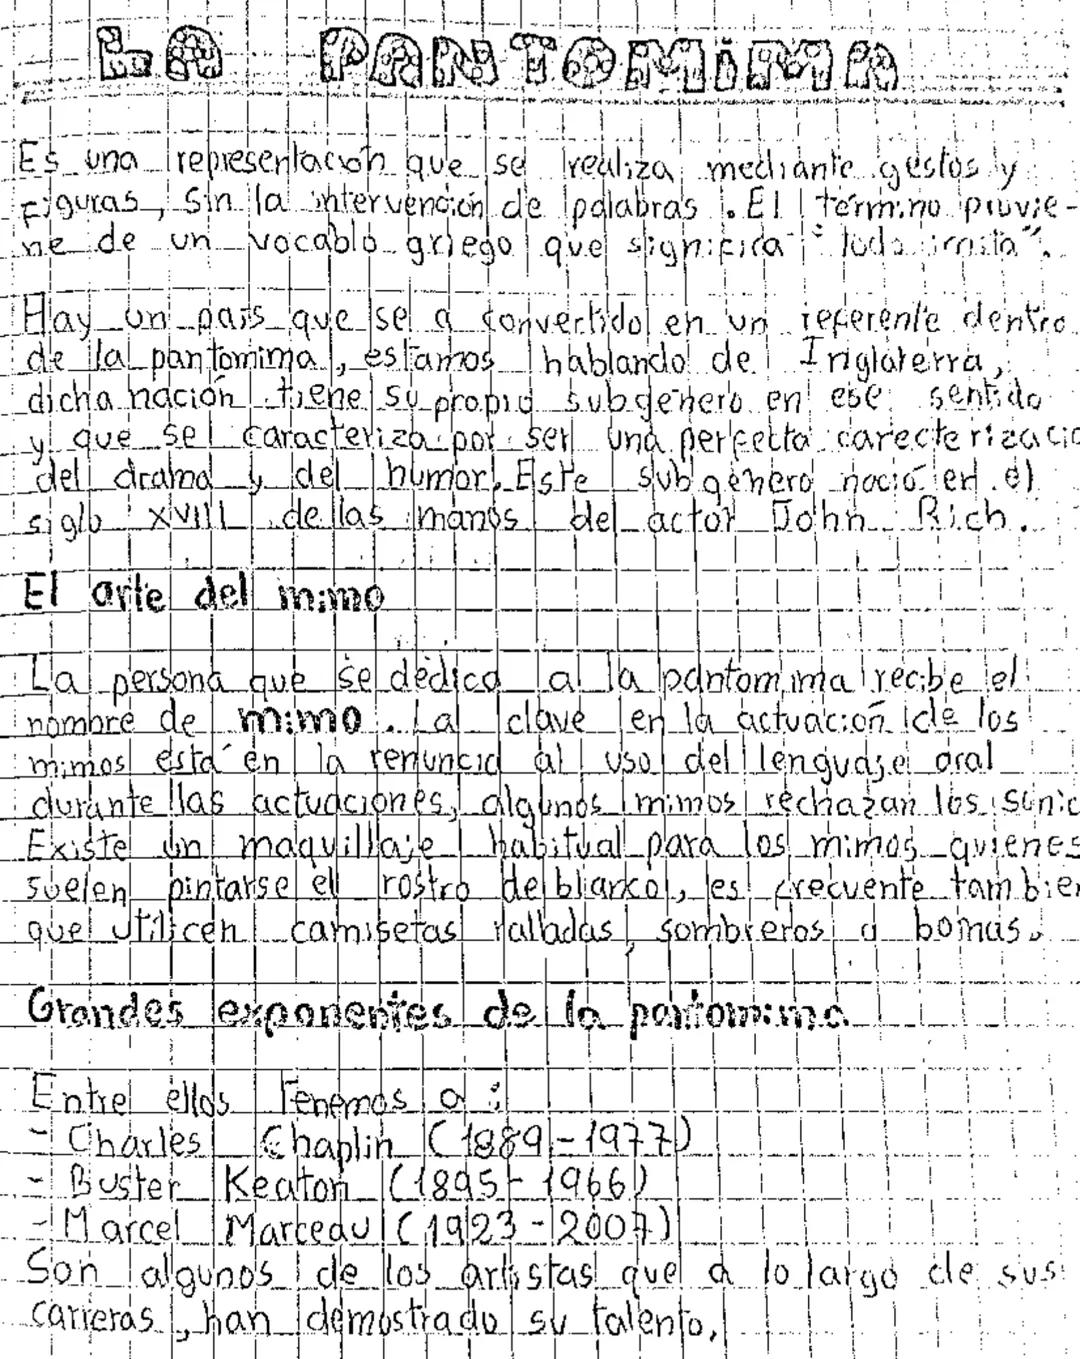 LA PANTOMIMA
Es una representación que se realiza mediante gestos y
Figuras, Sin la intervención de palabras. El término provie-
ne de un vocablo griego que significa "todo imita".
Hay un país que se a convertido en un referente dentro
de la pantomima, estamos hablando de Inglaterra,
dicha nación tiene su propio subgénero en ese sentido
y que se caracteriza por ser una perfecta carecterizacio
del drama y del humor. Este subgénero nació en el
siglo XVIII de las manos del actor John Rich.
El arte del mimo
La persona que se dedica a la pantomima recibe el
nombre de mimo. La clave en la actuación de los
mimos está en la renuncia al uso del lenguaje oral
durante las actuaciones, algunos mimos rechazan los sonid
Existe un maquillaje habitual para los mimos quienes
suelen pintarse el rostro de blanco, es frecuente tambien
que utilicen camisetas ralladas, sombreros o boinas.
Grandes exponentes de la pantomima
Entre ellos Tenemos a:
- Charles Chaplin (1889-1977)
- Buster Keaton (1895-1966)
- Marcel Marceau (1923-2007)
Son algunos de los artistas que a lo largo de sus
carreras, han demostrado su talento.